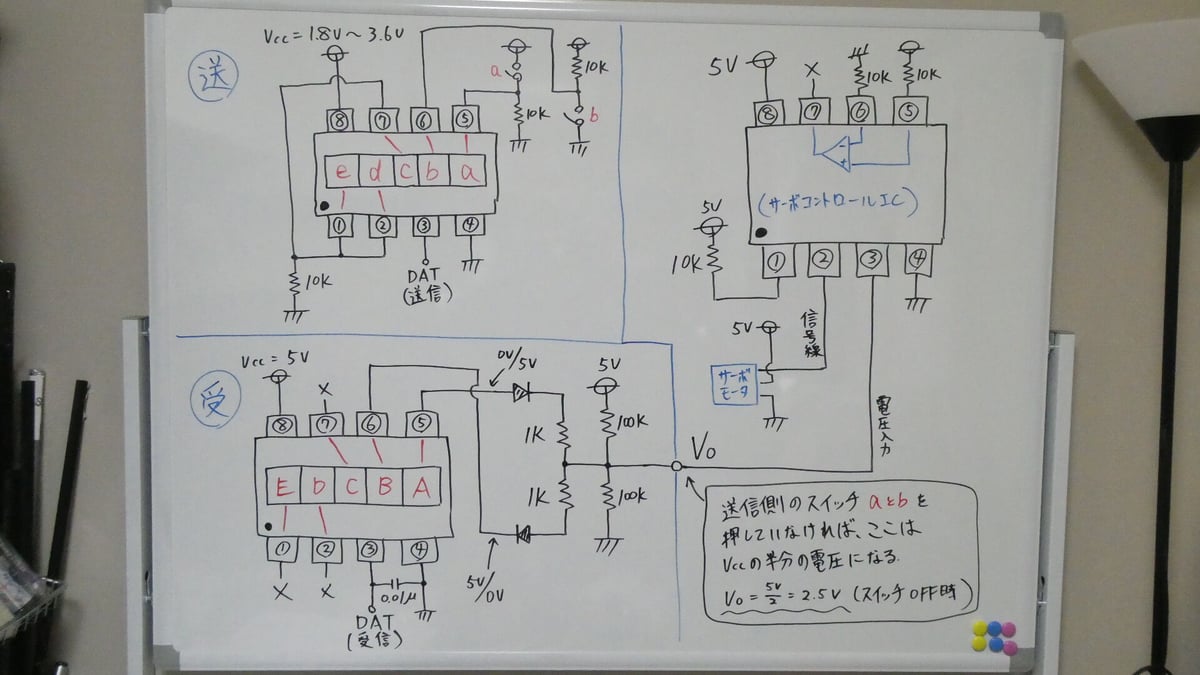 送
Vcc = 1.8V～3.6V
a
10K
10K
b
⑧ ⑦ ⑥ ⑤
e d c b a
① ② ③ ④
10K
DAT
(送信)
5V
X
10K
10K
⑧ ⑦ ⑥ ⑤
- +
(サーボコントロールIC)
5V
10K
① ② ③ ④
5V
信号線
サーボ
モータ
電圧入力
受
Vcc = 5V
X
0V/5V
5V
⑧ ⑦ ⑥ ⑤
1K
100K
E D C B A
1K
100K
① ② ③ ④
X X
0.01μ
5V/0V
DAT
(受信)
Vo
送信側のスイッチ aとbを
押していなければ、ここは
Vccの半分の電圧になる.
Vo = 5V/2 = 2.5V (スイッチOFF時)